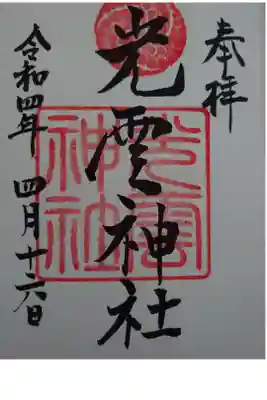 奉拝
光雲神社
光雲神社
令和四年 四月十六日